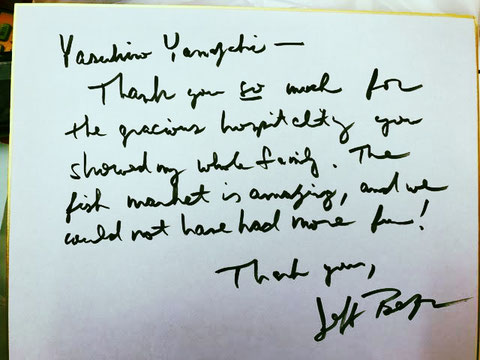 Yasuhiro Yamaguchi —
Thank you so much for
the gracious hospitality you
showed my whole family. The
fish market is amazing, and we
could not have had more fun!
Thank you,
Jeff